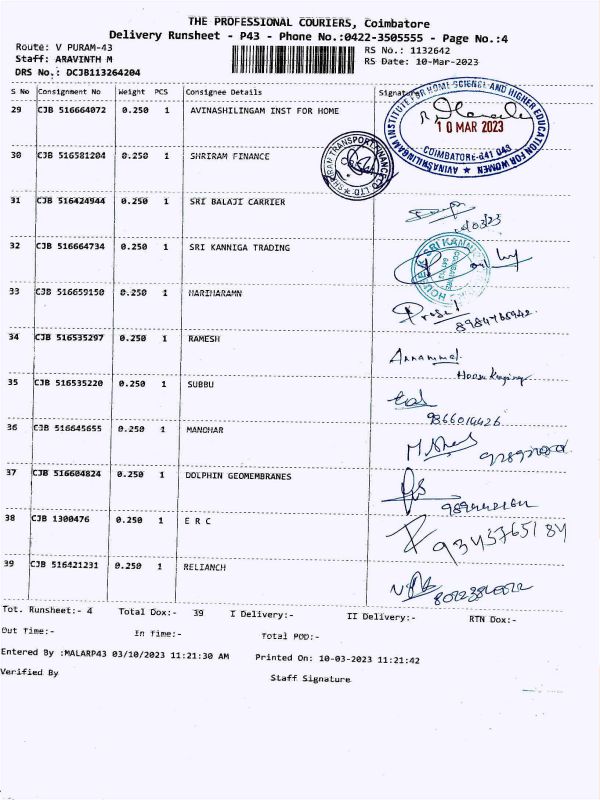 THE PROFESSIONAL COURIERS, Coimbatore
Delivery Runsheet - P43 - Phone No.:0422-3505555 - Page No.:4
Route: V PURAM-43 RS No.: 1132642
Staff: ARAVINTH M RS Date: 10-Mar-2023
DRS No.: DCJB113264204
S No Consignment No Weight PCS Consignee Details Signature
29 CJB 516664072 0.250 1 AVINASHILINGAM INST FOR HOME
AVINASHILINGAM INSTITUTE FOR HOME SCIENCE AND HIGHER EDUCATION FOR WOMEN
10 MAR 2023
COIMBATORE-641 043
30 CJB 516581204 0.250 1 SHRIRAM FINANCE
SHRIRAM TRANSPORT FINANCE CO LTD
31 CJB 516424944 0.250 1 SRI BALAJI CARRIER
32 CJB 516664734 0.250 1 SRI KANNIGA TRADING
33 CJB 516659150 0.250 1 HARIHARAMN
34 CJB 516535297 0.250 1 RAMESH
35 CJB 516535220 0.250 1 SUBBU
9366014426
36 CJB 516645655 0.250 1 MANOHAR
37 CJB 516604824 0.250 1 DOLPHIN GEOMEMBRANES
38 CJB 1300476 0.250 1 E R C
9343765184
39 CJB 516421231 0.250 1 RELIANCH
Tot. Runsheet:- 4 Total Dox:- 39 I Delivery:- II Delivery:- RTN Dox:-
Out Time:- In Time:- Total POD:-
Entered By :MALARP43 03/10/2023 11:21:30 AM Printed On: 10-03-2023 11:21:42
Verified By Staff Signature